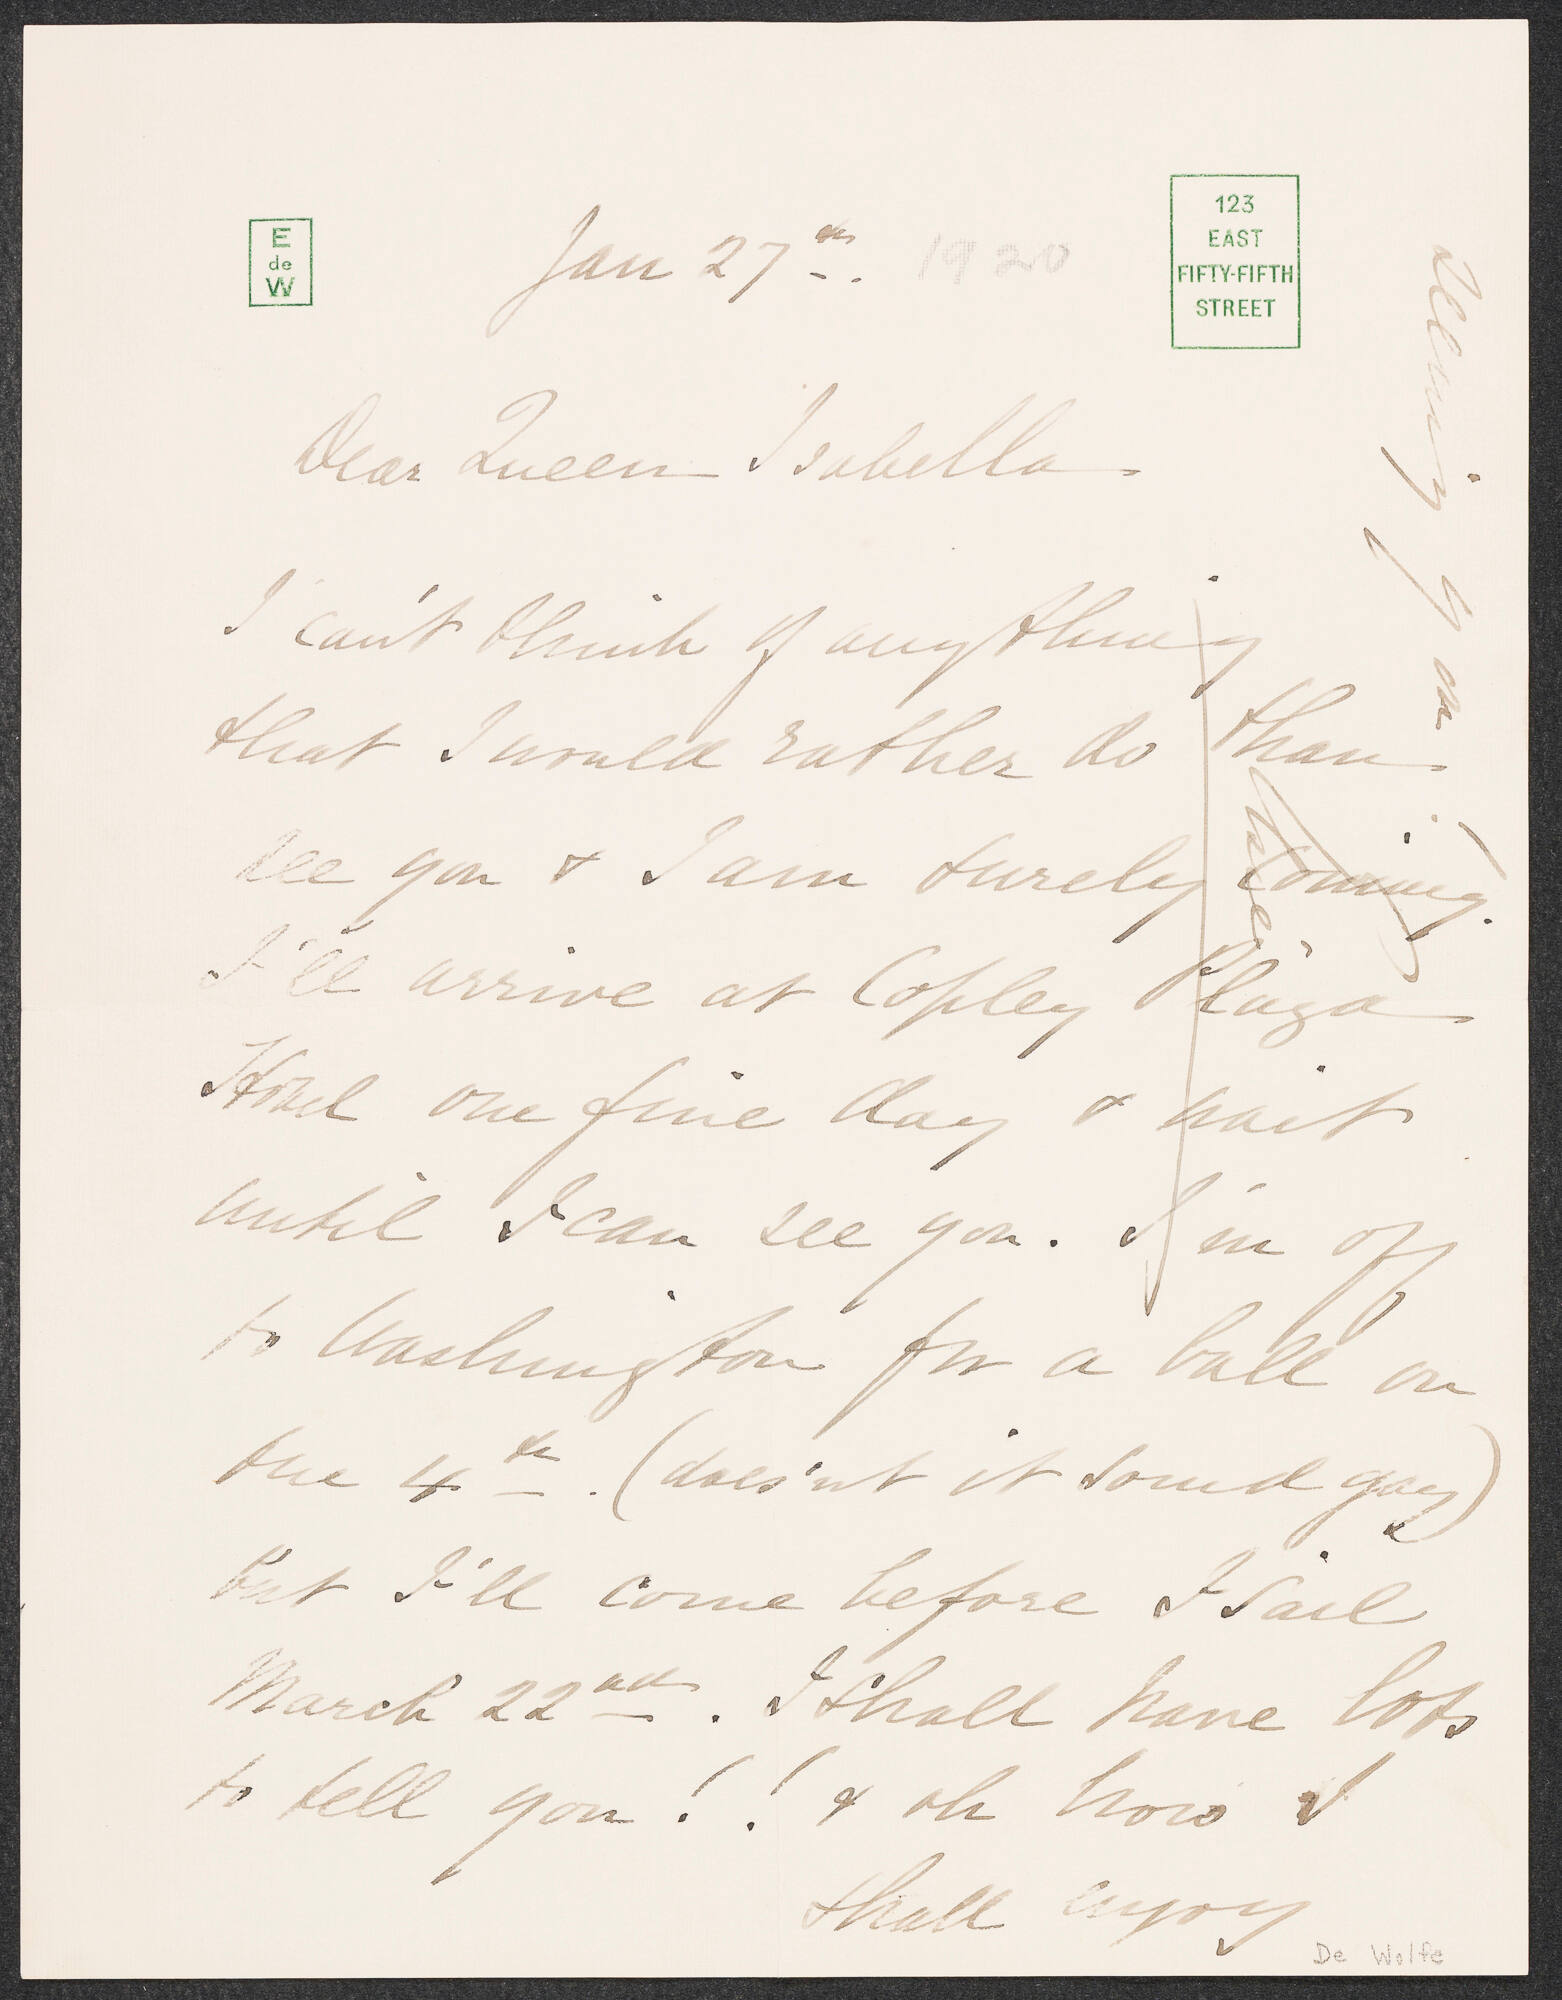 E
de
W
Jan 27th. 1920
123
EAST
FIFTY-FIFTH
STREET
Dear Queen Isabella
I can't think of anything
that I would rather do than
see you & I am surely coming.
I'll arrive at Copley Plaza
Hotel one fine day & wait
until I can see you. I'm off
to Washington for a ball on
the 4th. (does'nt it sound gay)
but I'll come before I sail
March 22nd. I shall have lots
to tell you!! & oh how I
shall enjoy
seeing you!
Elsie
De Wolfe